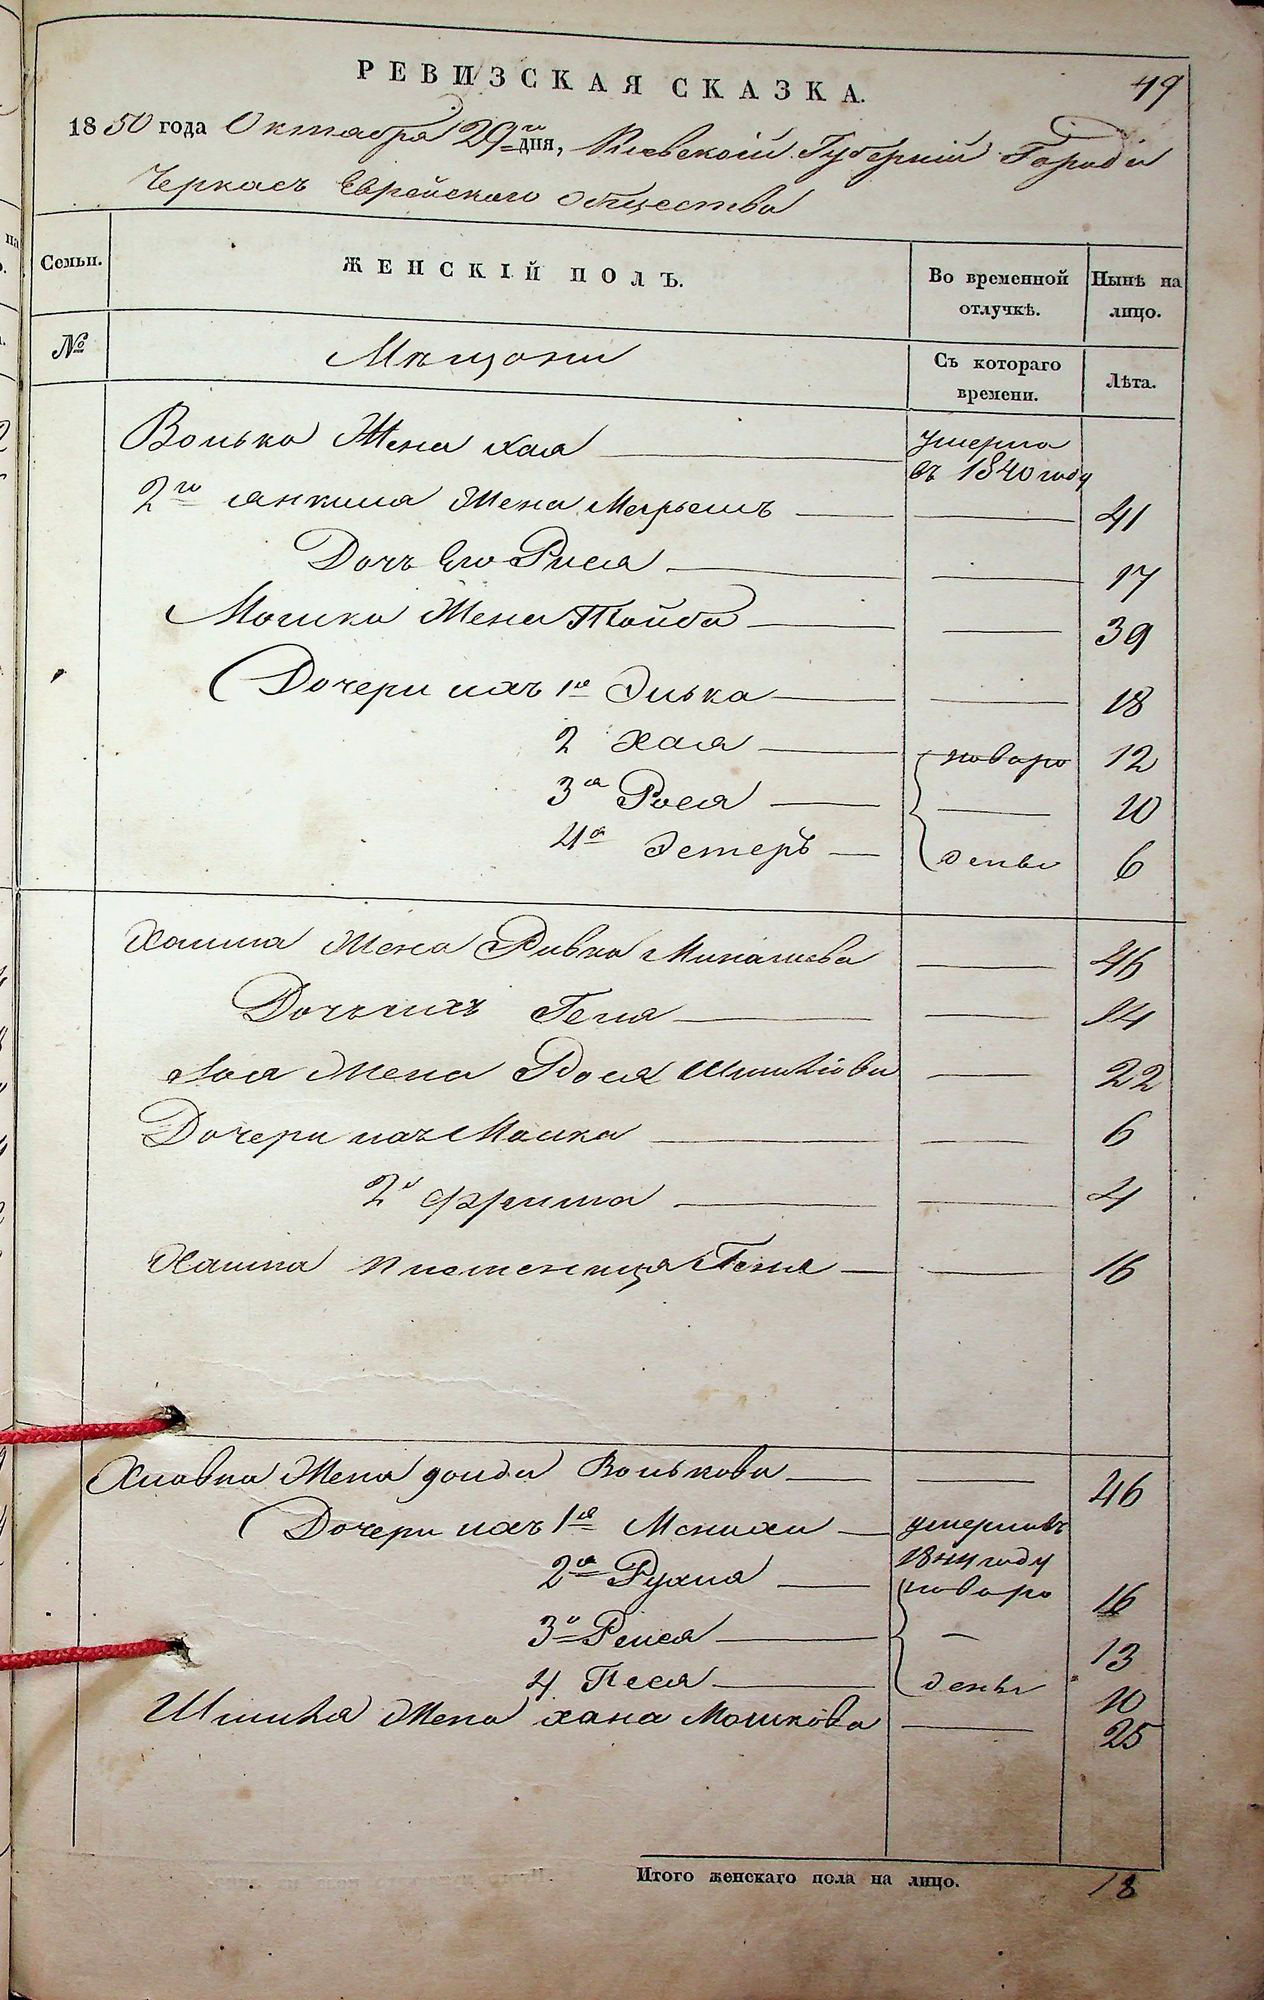 РЕВИЗСКАЯ СКАЗКА.
49
1850 года Октября 29го дня, Киевской Губерніи Города
Черкасъ Еврейского общества
Семьи.
ЖЕНСКІЙ ПОЛЪ.
Во временной отлучкѣ.
Нынѣ на лицо.
№
Мѣщани
Съ котораго времени.
Лѣта.
Волька Жена Хая умерла
въ 1840 году
2го Янкиля Жена Марьемъ 41
Дочь Его Рися 17
Мошка Жена Тайба 39
Дочери ихъ 1я Элька 18
2 Хая поворо 12
3я Рося 10
4я Эстеръ день 6
Хаима Жена Ривка 46
Дочь ихъ Геня 14
Жена Рося 22
Дочери ихъ Малка 6
2я Фрима 4
Хаима племеница Геня 16
Хлавна Жена Волькова 46
Дочери ихъ 1я умерла въ
1844 году
2я Рухля поворо 16
3я Рейся 13
4 Песя день 10
Жена Хана Мошкова 25
Итого женскаго пола на лицо. 18